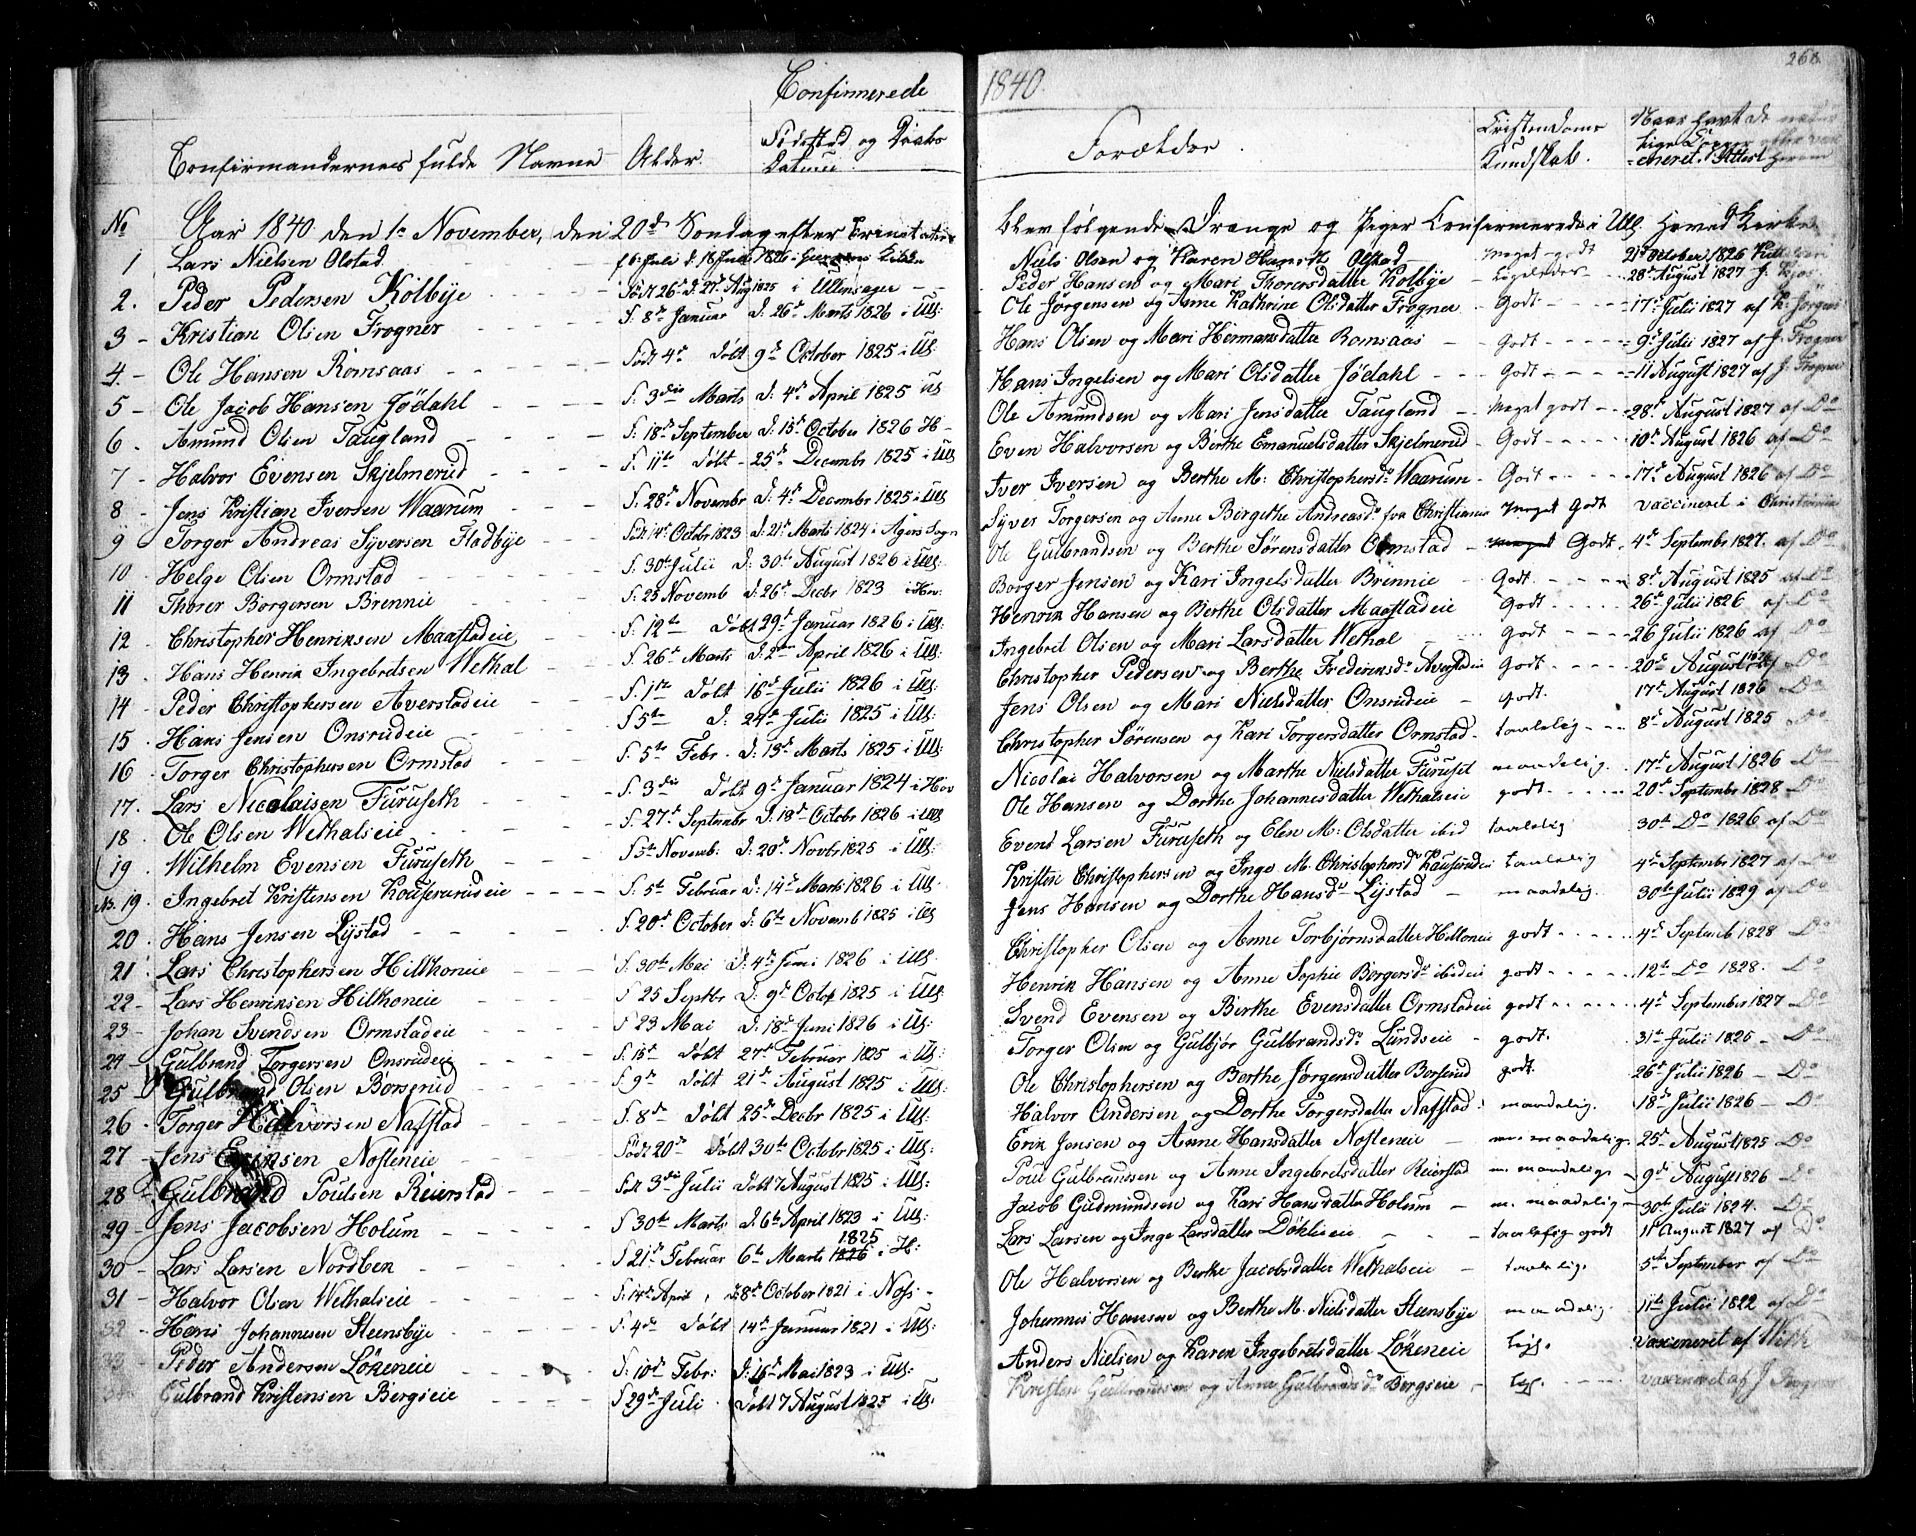 268
Confirmerede 1840.
Confirmandernes fulde Navne Alder. Fødested og Daabs Datum Forældre. Cristendoms Kundskab. Naar havt de
No Aar 1840 den 1e November, den 20de Søndag efter Trinitatis blev følgende Drenge og Piger Confirmerede i Ull. Hoved Kirke
1 Lars Nielsen Olstad f 6 Juli d. 18 Juli 1826 i Niels Olsen og Karen Hansd. Olstad meget godt 21d October 1826
2. Peder Pedersen Kolbye født 26d d. 27 Aug 1825 i Ullensager Peder Hansen og Mari Thorersdatter Kolbye ligeledes 28d August 1827
3 - Kristian Olsen Frogner f. 8de Januar d. 26de Marts 1826 i Ull: Ole Jørgensen og Anne Kathrine Olsdatter Frogner Godt 17d Julii 1827 af
4. Ole Hansen Romsaas Født 4d Døbt 9d October 1825 i Ull Hans Olsen og Mari Hermansdatter Romsaas godt 9d Julii 1827 af J. Frogner
5 - Ole Jacob Hansen Jødahl f. 3die Marts d. 4d April 1825 Ull Hans Ingelsen og Mari Olsdatter Jødahl Godt 11 August 1827 af J. Frogner
6 - Amund Olsen Taugland f. 18d September d. 15d October 1826 H Ole Amundsen og Mari Jensdatter Taugland meget godt 28d August 1827 af Do
7 - Halvor Evensen Skjelmerud f. 11te Døbt 25d Decembr 1825 i Ull Even Halvorsen og Berthe Emanuelsdatter Skjelmerud Godt 10d August 1826 af Do
8 - Jens Kristian Iversen Waarum f. 28d Novembr d. 4d Decembr 1825 i Ull Iver Iversen og Berthe M: Christophersdr Waarum Godt 17d August 1826 af Do
9 - Torger Andreas Syversen Fladbye født 14d Octobr 1823 d. 21d Marts 1824 i Agers Sogn Syver Torgersen og Anne Birgithe Andreasdr fra Christiania meget Godt vaccineret i Christiania
10 - Helge Olsen Ormstad f. 30te Julii d. 30te August 1826 i Ull: Ole Gulbrandsen og Berthe Sørensdatter Ormstad meget Godt 4d Septembr 1827. af Do
11 - Thorer Borgersen Brennie f. 25 Novemb d. 26d Decbr 1823 i Hov: Borger Jensen og Kari Ingelsdatter Brennie Godt 8d August 1825 af Do
12 - Christopher Henriksen Maastadeie f. 12te Døbt 29d Januar 1826 i Ull: Henrik Hansen og Berthe Olsdatter Maastadeie Godt 26d Julii 1826 af Do
13 . Hans Henrik Ingebretsen Wethal f. 26d Marts d. 2den April 1826 i Ull: Ingebret Olsen og Mari Larsdatter Wethal Godt 26 Julii 1826 af Do
14 - Peder Christophersen Averstadeie f. 1te Døbt 16d Julii 1826 i Ull: Christopher Pedersen og Berthe Frederiksdr Averstadeie Godt 20d August 1826 af Do
15 . Hans Jensen Onsrudeie f 5te d. 24d Julii 1825 i Ull: Jens Olsen og Mari Nielsdatter Onsrudeie godt. 17d August 1826 Do
16 - Torger Christophersen Ormstad f. 5te Febr. d. 13d Marts 1825 i Ull: Christopher Sørensen og Kari Torgersdatter Ormstad taalelig 8d August 1825 Do
17. Lars Nicolaisen Furuseth f. 3die Døbt 9d Januar 1824 i Hov Nicolai Halvorsen og Marthe Nielsdatter Furuset maadelig. 17d August 1826 Do
18 . Ole Olsen Wethalseie f. 27d Septembr d. 18d Octobr 1826 i Ull Ole Hansen og Dorthe Johannesdatter Wethalseie godt 20d Septembr 1828 Do
19 . Wilhelm Evensen Furuseth f 5te Novemb: d. 20d Novbr 1825 i Ull: Evend Larsen Furuseth og Elen M: Olsdatter ibid taalelig 30te Do 1826 af Do
No. 19 . Ingebret Kristensen Kauserudeie f. 5te Februar d. 14d Marts 1826 i Ull: Kristen Christophersen og Inge M. Christophersdr Kauserudeie taalelig 4d Septembr 1827 af Do
20 . Hans Jensen Lystad f. 20d October d. 6te Novemb 1825 i Ull Jens Hansen og Dorthe Hansdr Lystad maadelig. 30te Julii 1829 af Do
21 . Lars Christophersen Hilthoneie f. 30te Mai d. 4d Juni 1826 i Ull: Christopher Olsen og Anne Torbjørnsdatter Hiltoneie godt 4d Septemb 1828 Do
22 - Lars Henriksen Hilthoneie f 25 Septbr d. 9d Octob 1825 i Ull: Henrik Hansen og Anne Sophie Borgersdr ibideie godt 12te Do 1828. Do
23 - Johan Svendsen Ormstadeie f 23 Mai d. 18d Juni 1826 i Ull: Svend Evensen og Berthe Evensdatter Ormstadeie godt 4d September 1827 Do
24 - Gulbrand Torgersen Onsrudeie f. 15d Døbt 27d Februar 1825 i Ull: Torger Olsen og Gulbjør Gulbrandsdr Lundseie godt. 31te Julii 1825 Do
25 Gulbrand Olsen Borserud f. 9d Døbt 21d August 1825 i Ull: Ole Christophersen og Berthe Jørgensdatter Borserud godt. 26d Julii 1826 Do
26 . Torger Halvorsen Nafstad f. 8d Døbt 25d Decbr 1825 i Ull: Halvor Andersen og Dorthe Torgersdatter Nafstad maadelig. 18d Julii 1826 Do
27 - Jens Eriksen Nosteneie Født 20d Døbt 30te October 1825 i Ull: Erik Jensen og Anne Hansdatter Nosteneie m. maadelig. 25d August 1825 Do
28 - Gulbrand Poulsen Reierstad født 3die Julii Døbt 7 August 1825 i Ull: Poul Gulbrandsen og Anne Ingebretsdatter Reierstad m. maadelig. 9d August 1826 Do
29 - Jens Jacobsen Holum f 30te Marts d. 6te April 1823 i Ull: Jacob Gudmundsen og Kari Hansdatter Holum m. maadelig 30te Julii 1824. Do
30 - Lars Larsen Nordsben f 21d Februar 6te Marts 1826 1825 i H: Lars Larsen og Inge Larsdatter Døhlieie taalelig godt 11 August 1827 af Do
31 - Halvor Olsen Wethalseie f. 14d April, d. 8d October 1821 i Ole Halvorsen og Berthe Jacobsdatter Wethalseie taalelig. 5te September af Do
32 - Hans Johannesen Steensbye f. 4d Døbt 14d Januar 1821 i Ull: Johannes Hansen og Berthe M. Nielsdatter Steensbye maadelig. 11te Julii 1822 af Do
33 - Peder Andersen Løkeneie f. 10d Febr: d. 16d Mai 1823 i Ull: Anders Nielsen og Karen Ingebretsdatter Løkeneie vaccineret af
Gulbrand Kristensen Bergseie f 29d Juli Døbt 7 August 1825 i Ull: Kristen Gulbrandsen og Anne Gulbrandsdr Bergseie vaccineret af J. Frogner